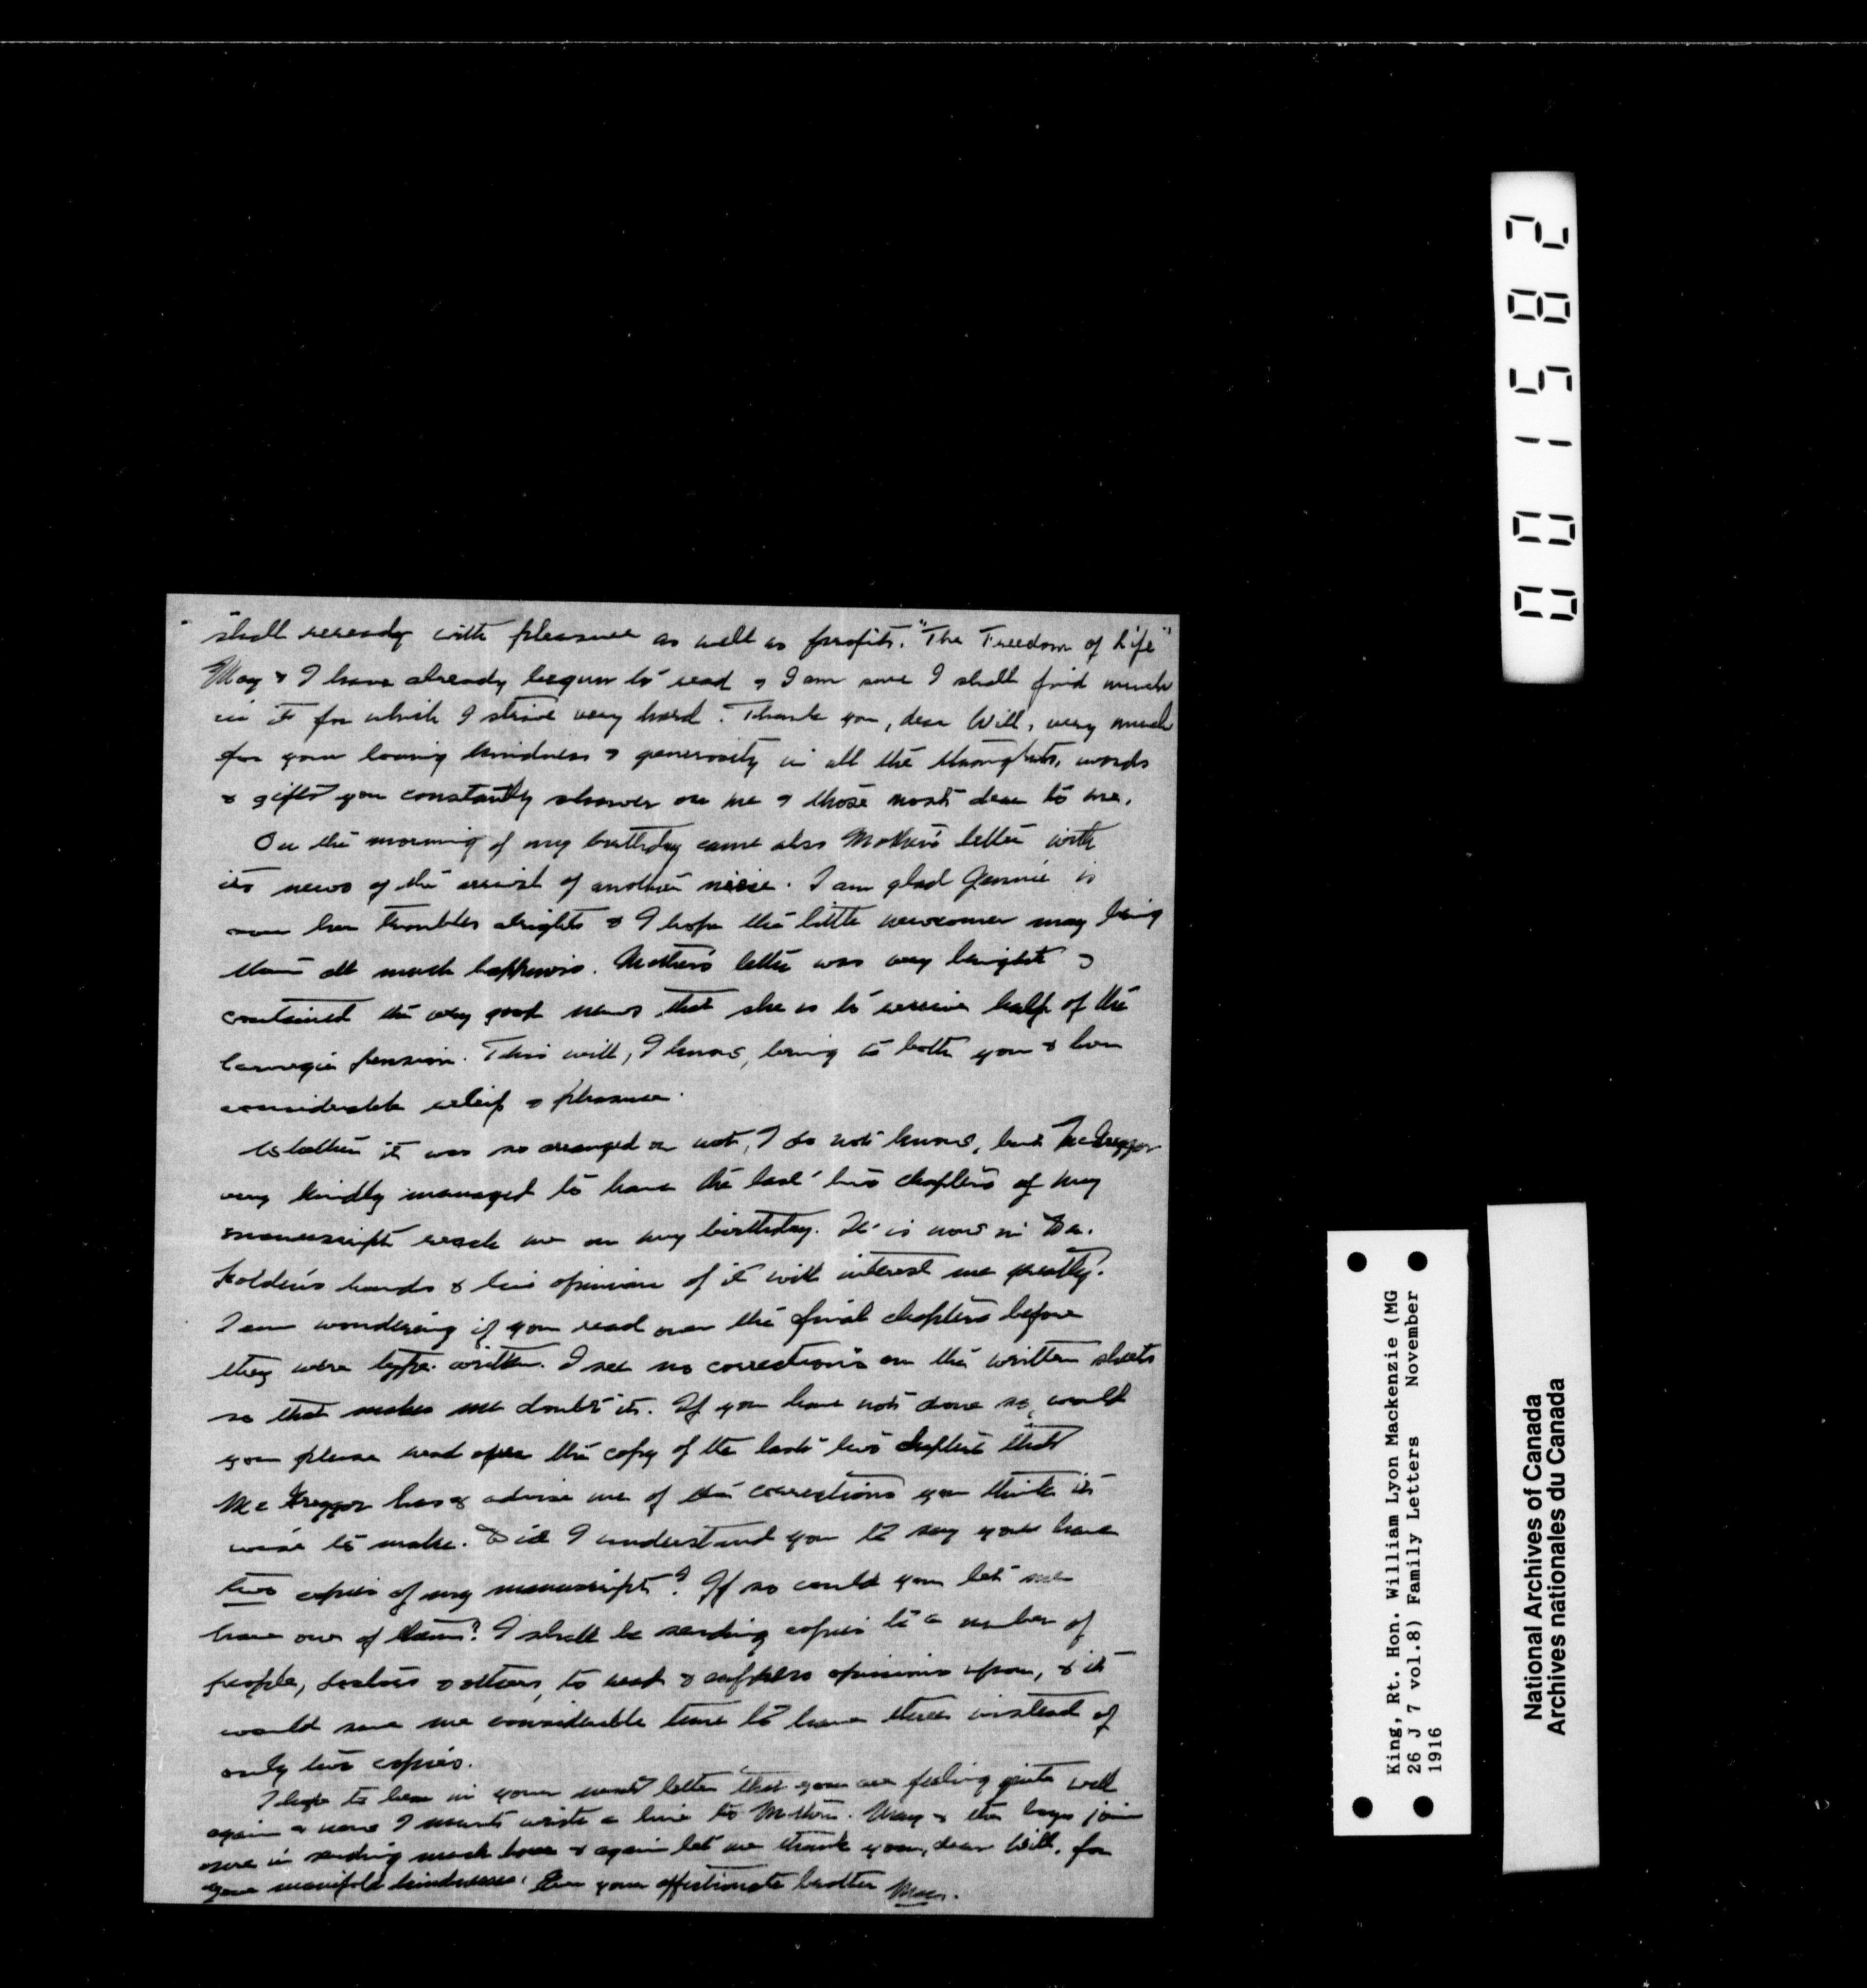 shall reread with pleasure as well as profit. "The Freedom of Life"
May & I have already begun to read & I am sure I shall find much
in it for which I strive very hard. Thank you, dear Will, very much
for your loving kindness & generosity in all the thoughts, words
& gifts you constantly shower on me & those most dear to me.
On the morning of my birthday came also Mother's letter with
its news of the arrival of another niece. I am glad Jennie is
over her troubles alright & I hope the little newcomer may bring
them all much happiness. Mother's letter was very bright &
contained the very good news that she is to receive half of the
Carnegie pension. This will, I know, bring to both you & her
considerable relief & pleasure.
Whether it was so arranged or not, I do not know, but McGreggor
very kindly managed to have the last two chapters of my
manuscript reach me on my birthday. It is now in Dr.
hands & his opinion of it will interest me greatly.
I am wondering if you read over the final chapters before
they were type-written. I see no corrections on the written sheets
so that makes me doubt it. If you have not done so, would
you please read over the copy of the last two chapters that
McGreggor has & advise me of the corrections you think it
wise to make. Did I understand you to say you have
two copies of my manuscript? If so could you let me
have one of them? I shall be sending copies to a number of
people, doctors & others, to read & express opinions upon, & it
would save me considerable time to have three instead of
only two copies.
I hope to hear in your next letter that you are feeling quite well
again & now I must write a line to Mother. May & the boys join
me in sending much love & again let me thank you, dear Will, for
your manifold kindnesses. Ever your affectionate brother Max.
001582
King, Rt. Hon. William Lyon Mackenzie (MG
26 J 7 vol.8) Family Letters November
1916
National Archives of Canada
Archives nationales du Canada